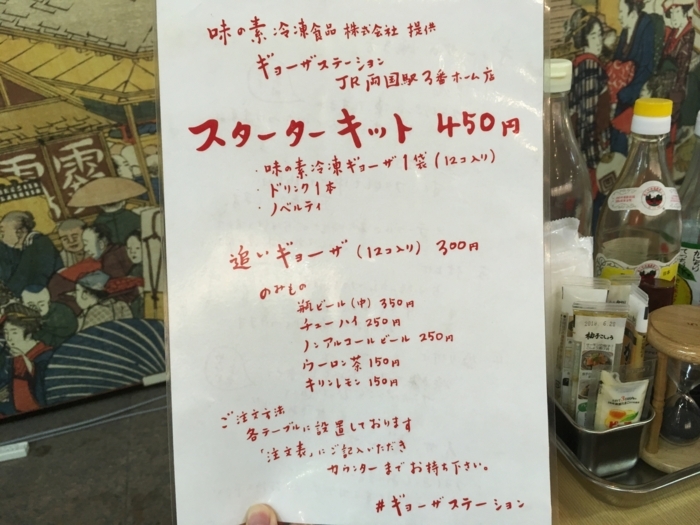 味の素冷凍食品 株式会社 提供
ギョーザステーション
JR両国駅3番ホーム店
スターターキット 450円
・味の素冷凍ギョーザ1袋(12コ入り)
・ドリンク1本
・ノベルティ
追いギョーザ(12コ入り) 300円
のみもの
瓶ビール(中) 350円
チューハイ 250円
ノンアルコールビール 250円
ウーロン茶 150円
キリンレモン 150円
ご注文方法
各テーブルに設置しております
「注文表」にご記入いただき
カウンターまでお持ち下さい。
#ギョーザステーション
柚子こしょう